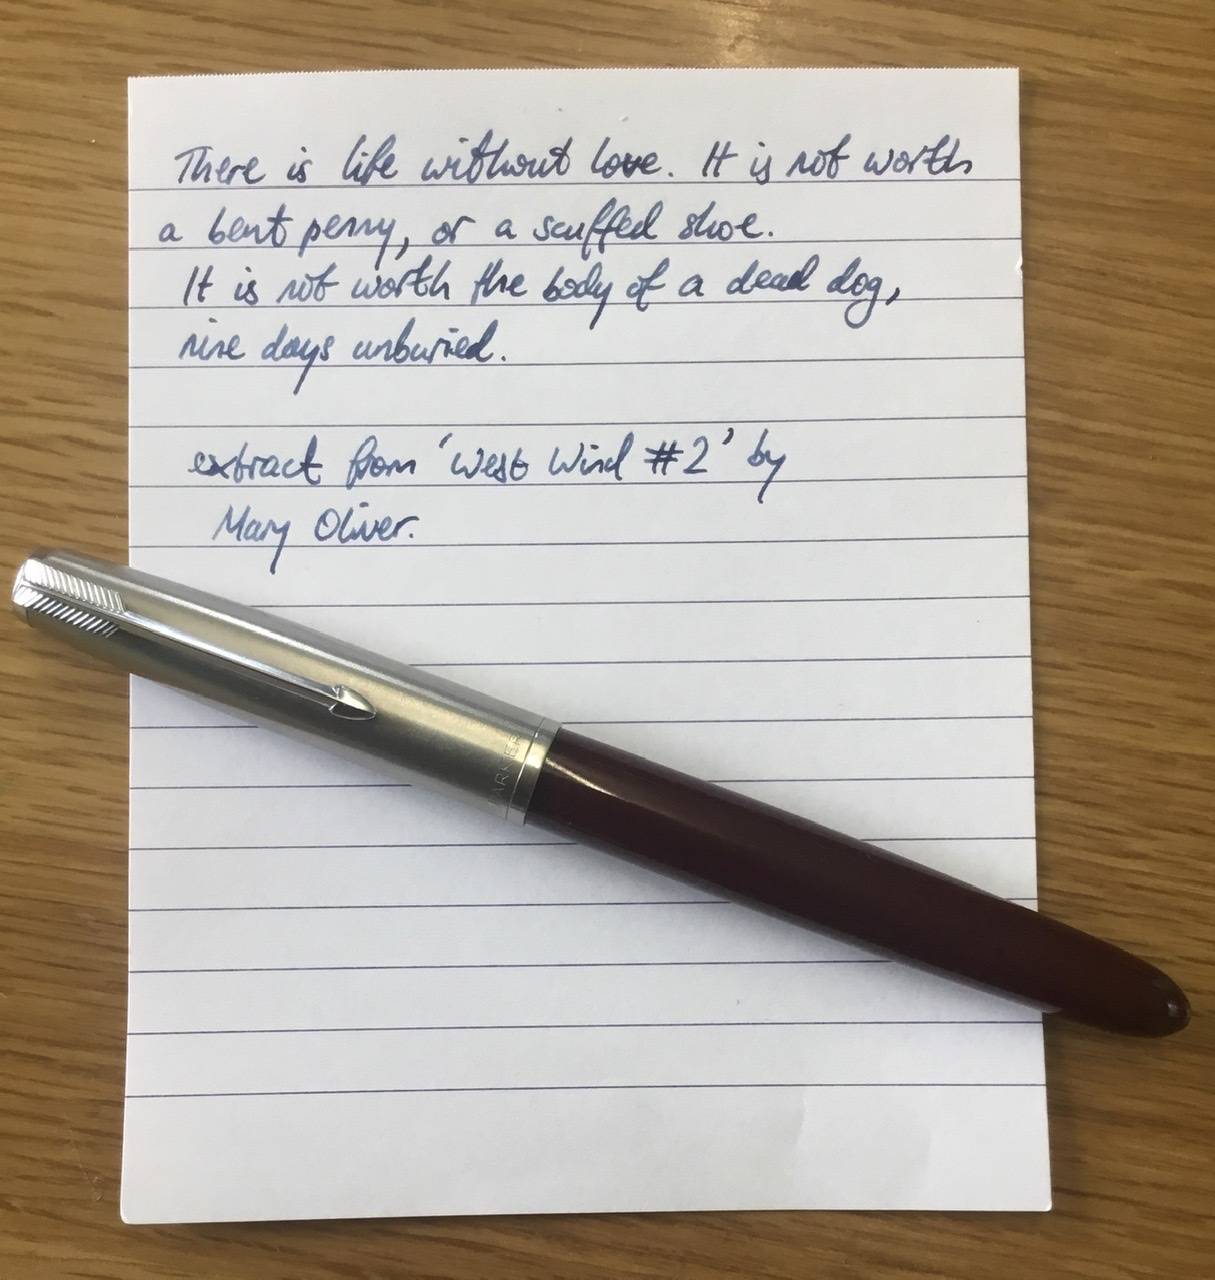 There is life without love. It is not worth
a bent penny, or a scuffed shoe.
It is not worth the body of a dead dog,
nine days unburied.
extract from 'West Wind #2' by
Mary Oliver.
PARKER